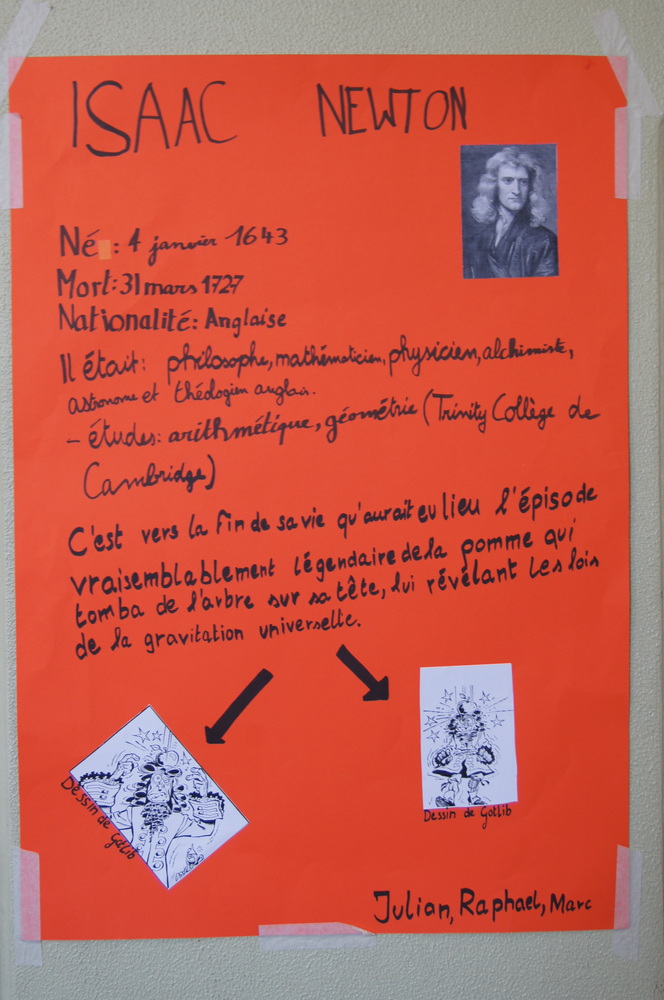 ISAAC NEWTON
Né : 4 janvier 1643
Mort: 31 mars 1727
Nationalité: Anglaise
Il était: philosophe, mathématicien, physicien, alchimiste,
astronome et théologien anglais.
- études: arithmétique, géométrie (Trinity Collège de
Cambridge)
C'est vers la fin de sa vie qu'aurait eu lieu l'épisode
vraisemblablement légendaire de la pomme qui
tomba de l'arbre sur sa tête, lui révélant les lois
de la gravitation universelle.
Dessin de Gotlib
Dessin de Gotlib
Julian, Raphael, Marc